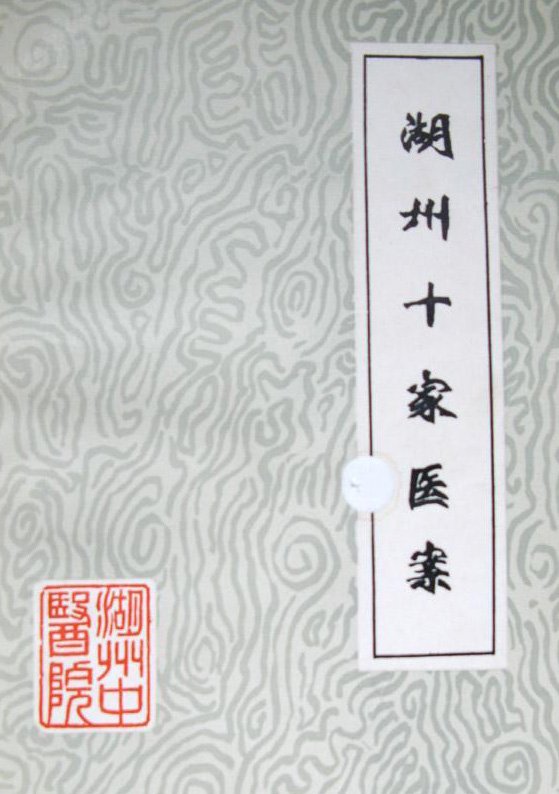 湖州十家医案
湖州中
醫院